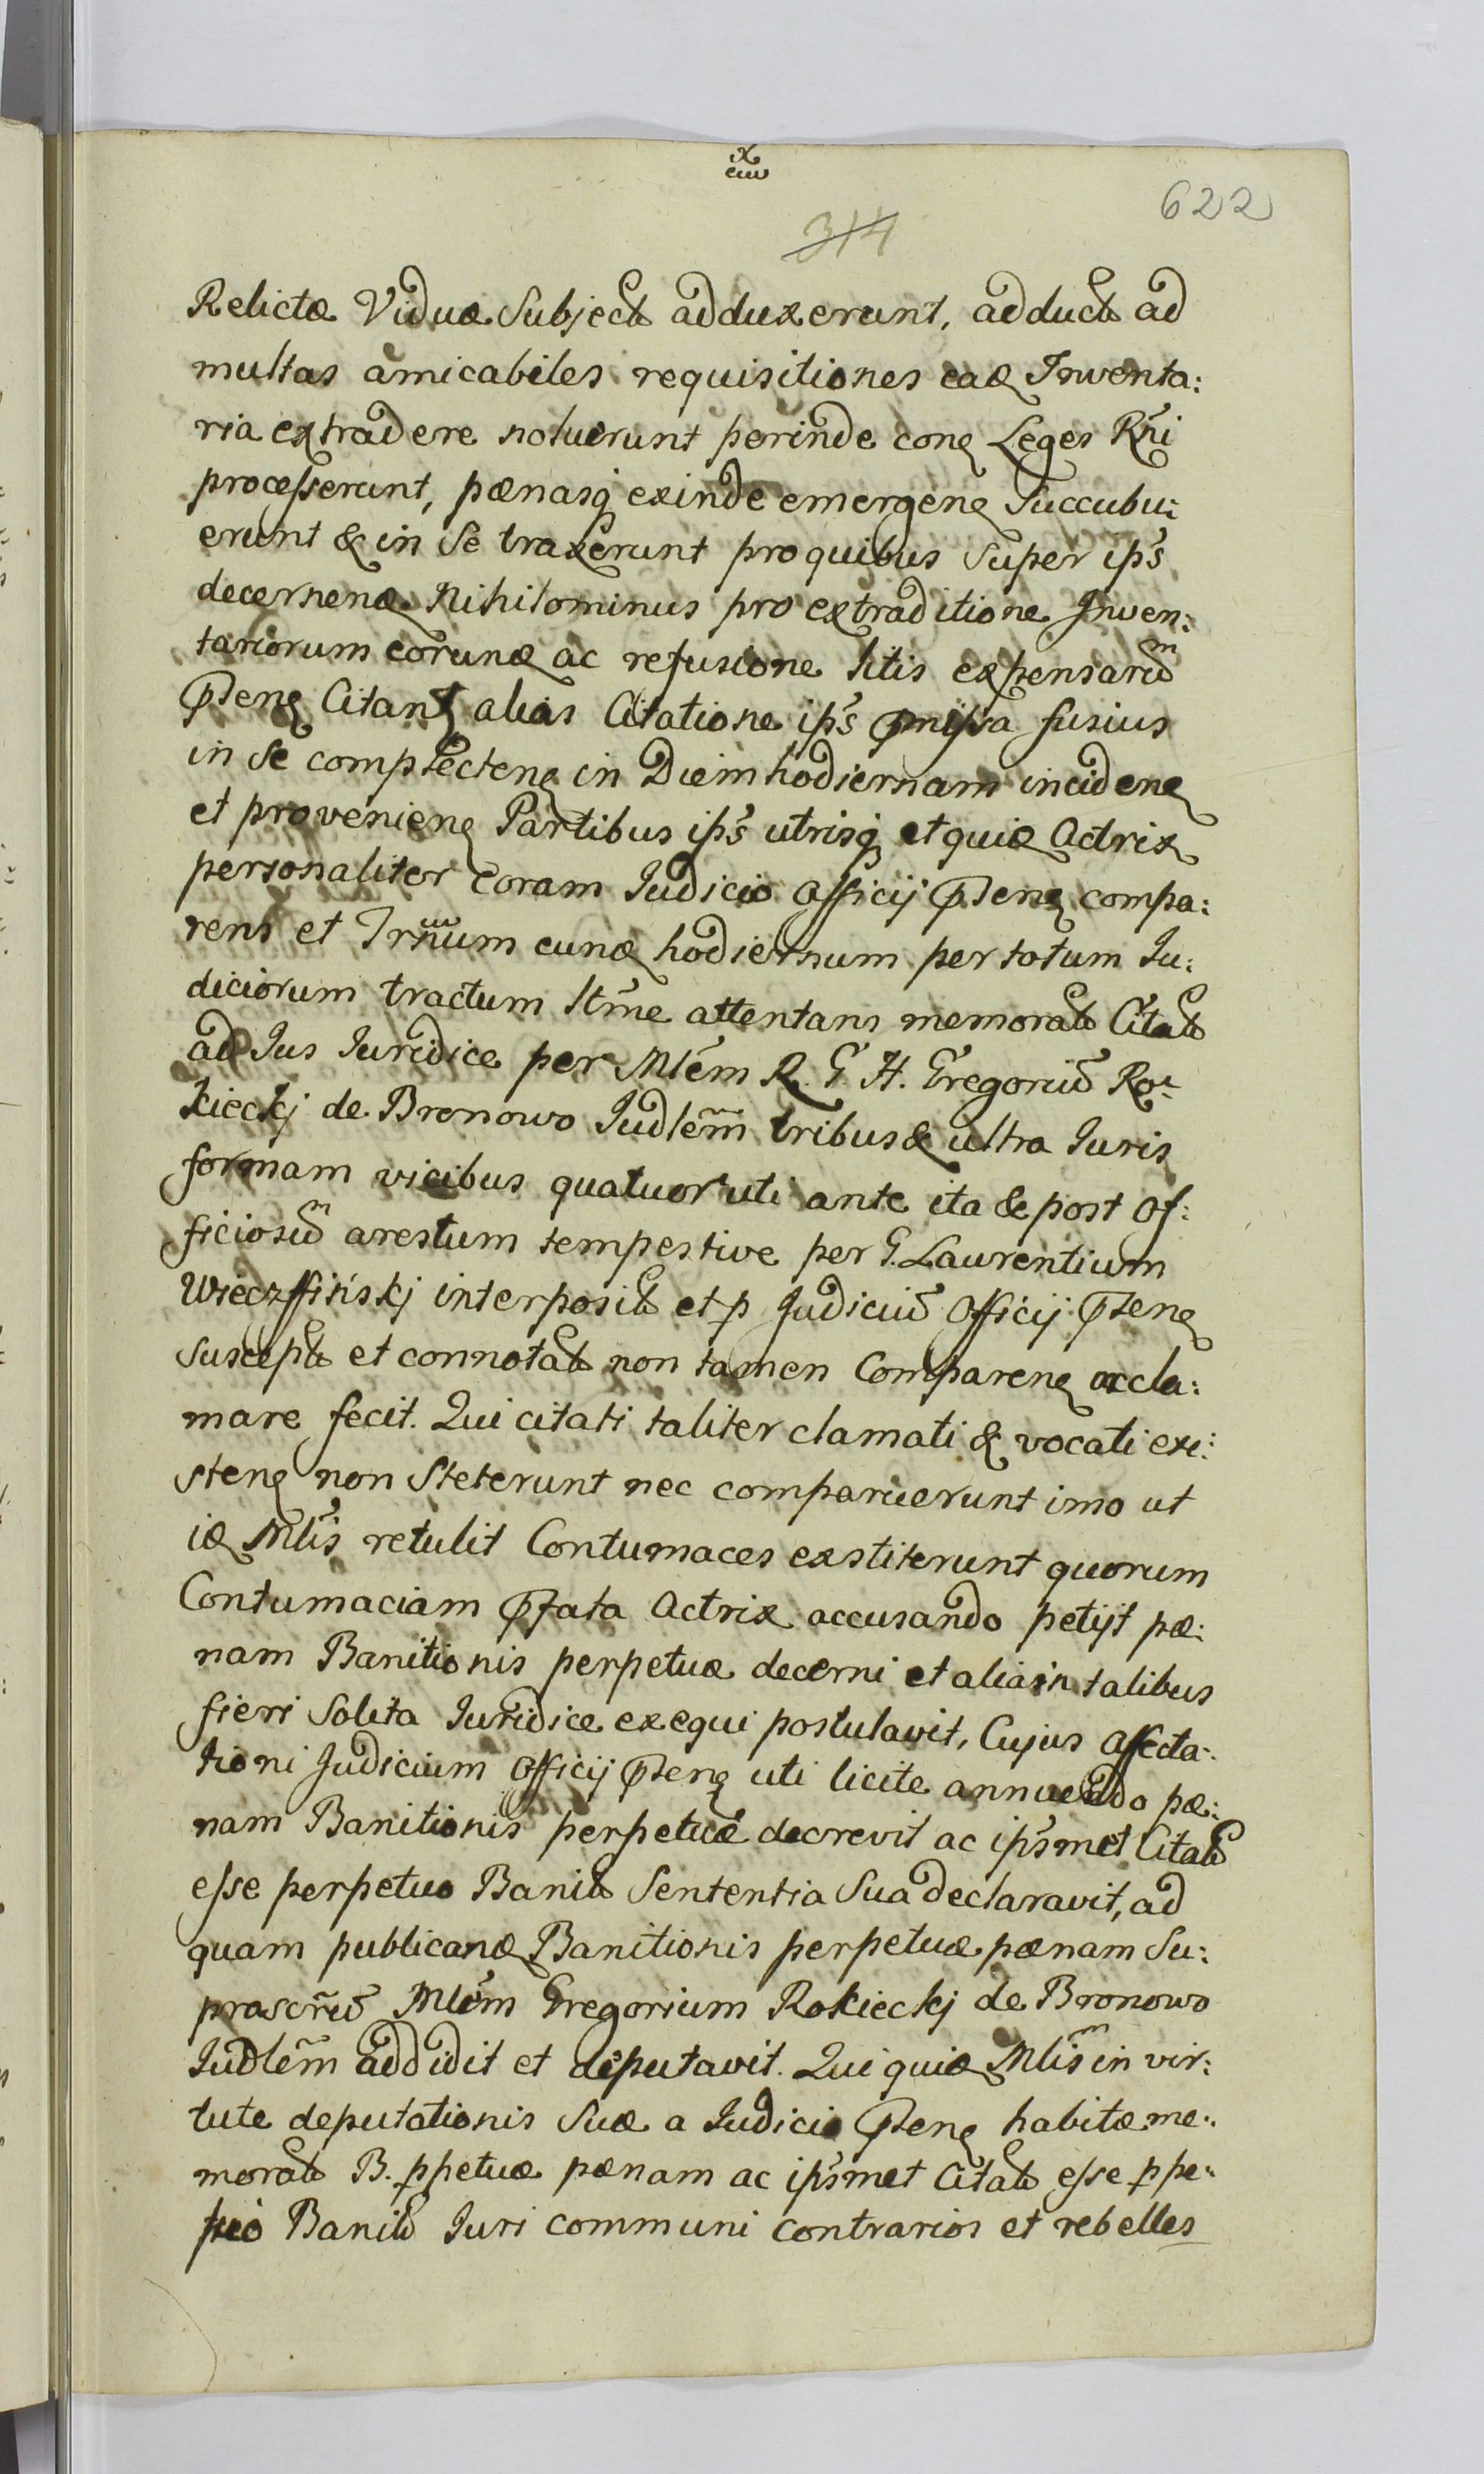 622
314
Relictæ Viduæ Subject adduxerunt, adduct ad
multas amicabiles requisitiones ead Inventa:
ria extradere noluerunt perinde con Leges Rñi
processerunt, pænasq exinde emergen Succubu:
erunt & in Se traxerunt pro quibus Super ips
decernend Nihilominus pro extraditione Inven:
tariorum eorund ac refusione litis expensarum
pten Citant alias Citatione ips pmissa fusius
in Se complecten in Diem hodiernam inciden
et provenien Partibus ips utrisq et quid Actrix
personaliter coram Iudicio Officij pten compa:
rens et Trnum eund hodiernum per totum Iu:
diciorum tractum ltme attentans memorat Citat
ad Ius Iuridice per Mlem R. G. H. Gregoriu Ro:
kieckj de Bronowo Iudlem tribus & ultra Iuris
formam vicibus quatuor uti ante ita & post Of:
ficiosum arestum tempestive per G. Laurentium
interposit et p Iudiciu Officij pten
suscept et connotat non tamen Comparen accla:
mare fecit. Qui citati taliter clamati & vocati exi:
sten non Steterunt nec comparuerunt imo ut
id Mlis retulit Contumaces exstiterunt quorum
Contumaciam pfata Actrix accusando petijt pæ:
nam Banitionis perpetuæ decerni et alia in talibus
fieri Solita Iuridice exequi postulavit, Cujus affecta:
tioni Judicium Officij pten uti licite annuendo pæ:
nam Banitionis perpetuæ decrevit ac ipsmet Citat
esse perpetuo Banit Sententia Sua declaravit, ad
quam publicand Banitionis perpetuæ pænam Su:
prascru Mlem Gregorium Rokieckj de Bronowo
Iudlem addidit et deputavit. Qui quid Mlis in vir:
tute deputationis Suæ a Iudicio pten habitæ me:
morat B. ppetuæ pænam ac ipsmet Citat esse ppe:
tuo Banit Iuri communi contrarios et rebelles